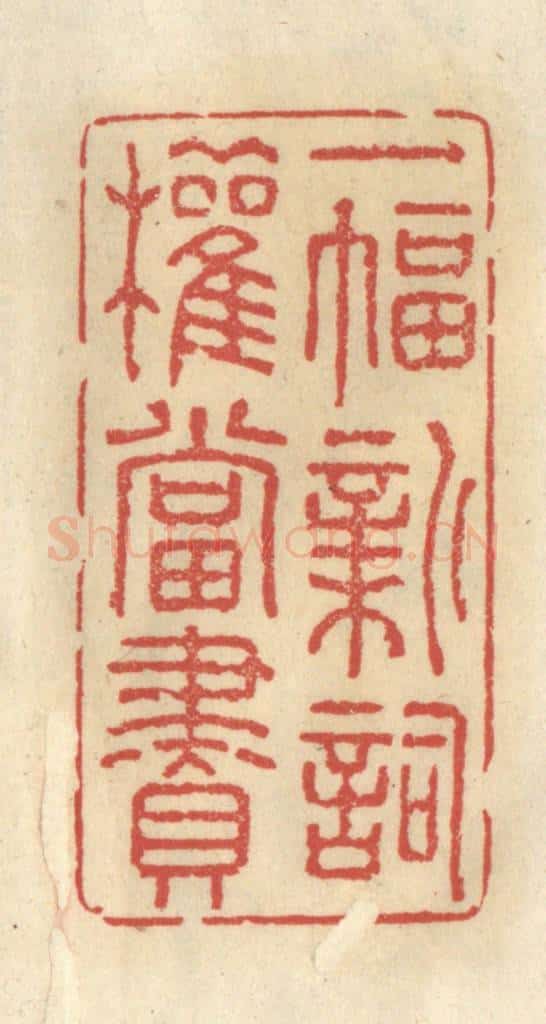 一幅新詞
權當賮
Shufawang.CN